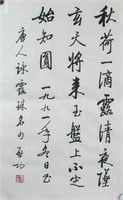 秋荷一滴露清夜墜
玄天将来玉盤上不定
始知圓 一九九一年冬日书
唐人詠露珠名句 启功